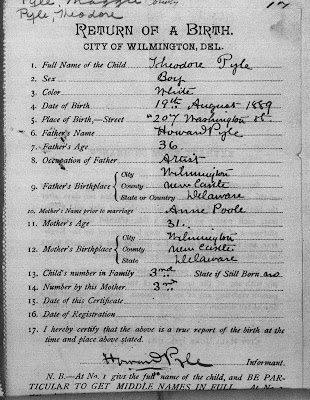 Pyle, Maggie
Pyle, Theodore
RETURN OF A BIRTH.
CITY OF WILMINGTON, DEL.
1. Full Name of the Child Theodore Pyle
2. Sex Boy
3. Color White
4. Date of Birth 19th August 1889
5. Place of Birth,—Street "207 Washington St.
6. Father's Name Howard Pyle
7. Father's Age 36
8. Occupation of Father Artist
9. Father's Birthplace City Wilmington
County New Castle
State or Country Delaware
10. Mother's Name prior to marriage Anne Poole
11. Mother's Age 31.
12. Mother's Birthplace City Wilmington
County New Castle
State Delaware
13. Child's number in Family 3rd State if Still Born
14. Number by this Mother. 3rd
15. Date of this Certificate
16. Date of Registration
17. I hereby certify that the above is a true report of the birth at the
time and place above stated.
Howard Pyle Informant.
N. B.—At No. 1 give the full name of the child, and BE PAR-
TICULAR TO GET MIDDLE NAMES IN FULL. At No.